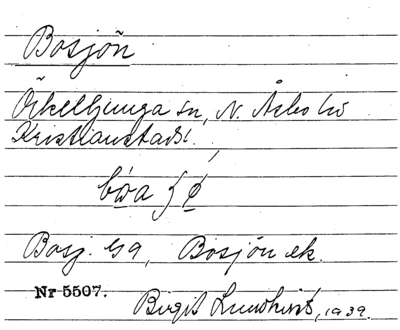 Bosjön
Örkelljunga sn, N. Åsbo hd
Kristianstads l.
Bosj. G9, Bosjön ek.
Nr 5507.
Birgit Lundkvist, 1939.